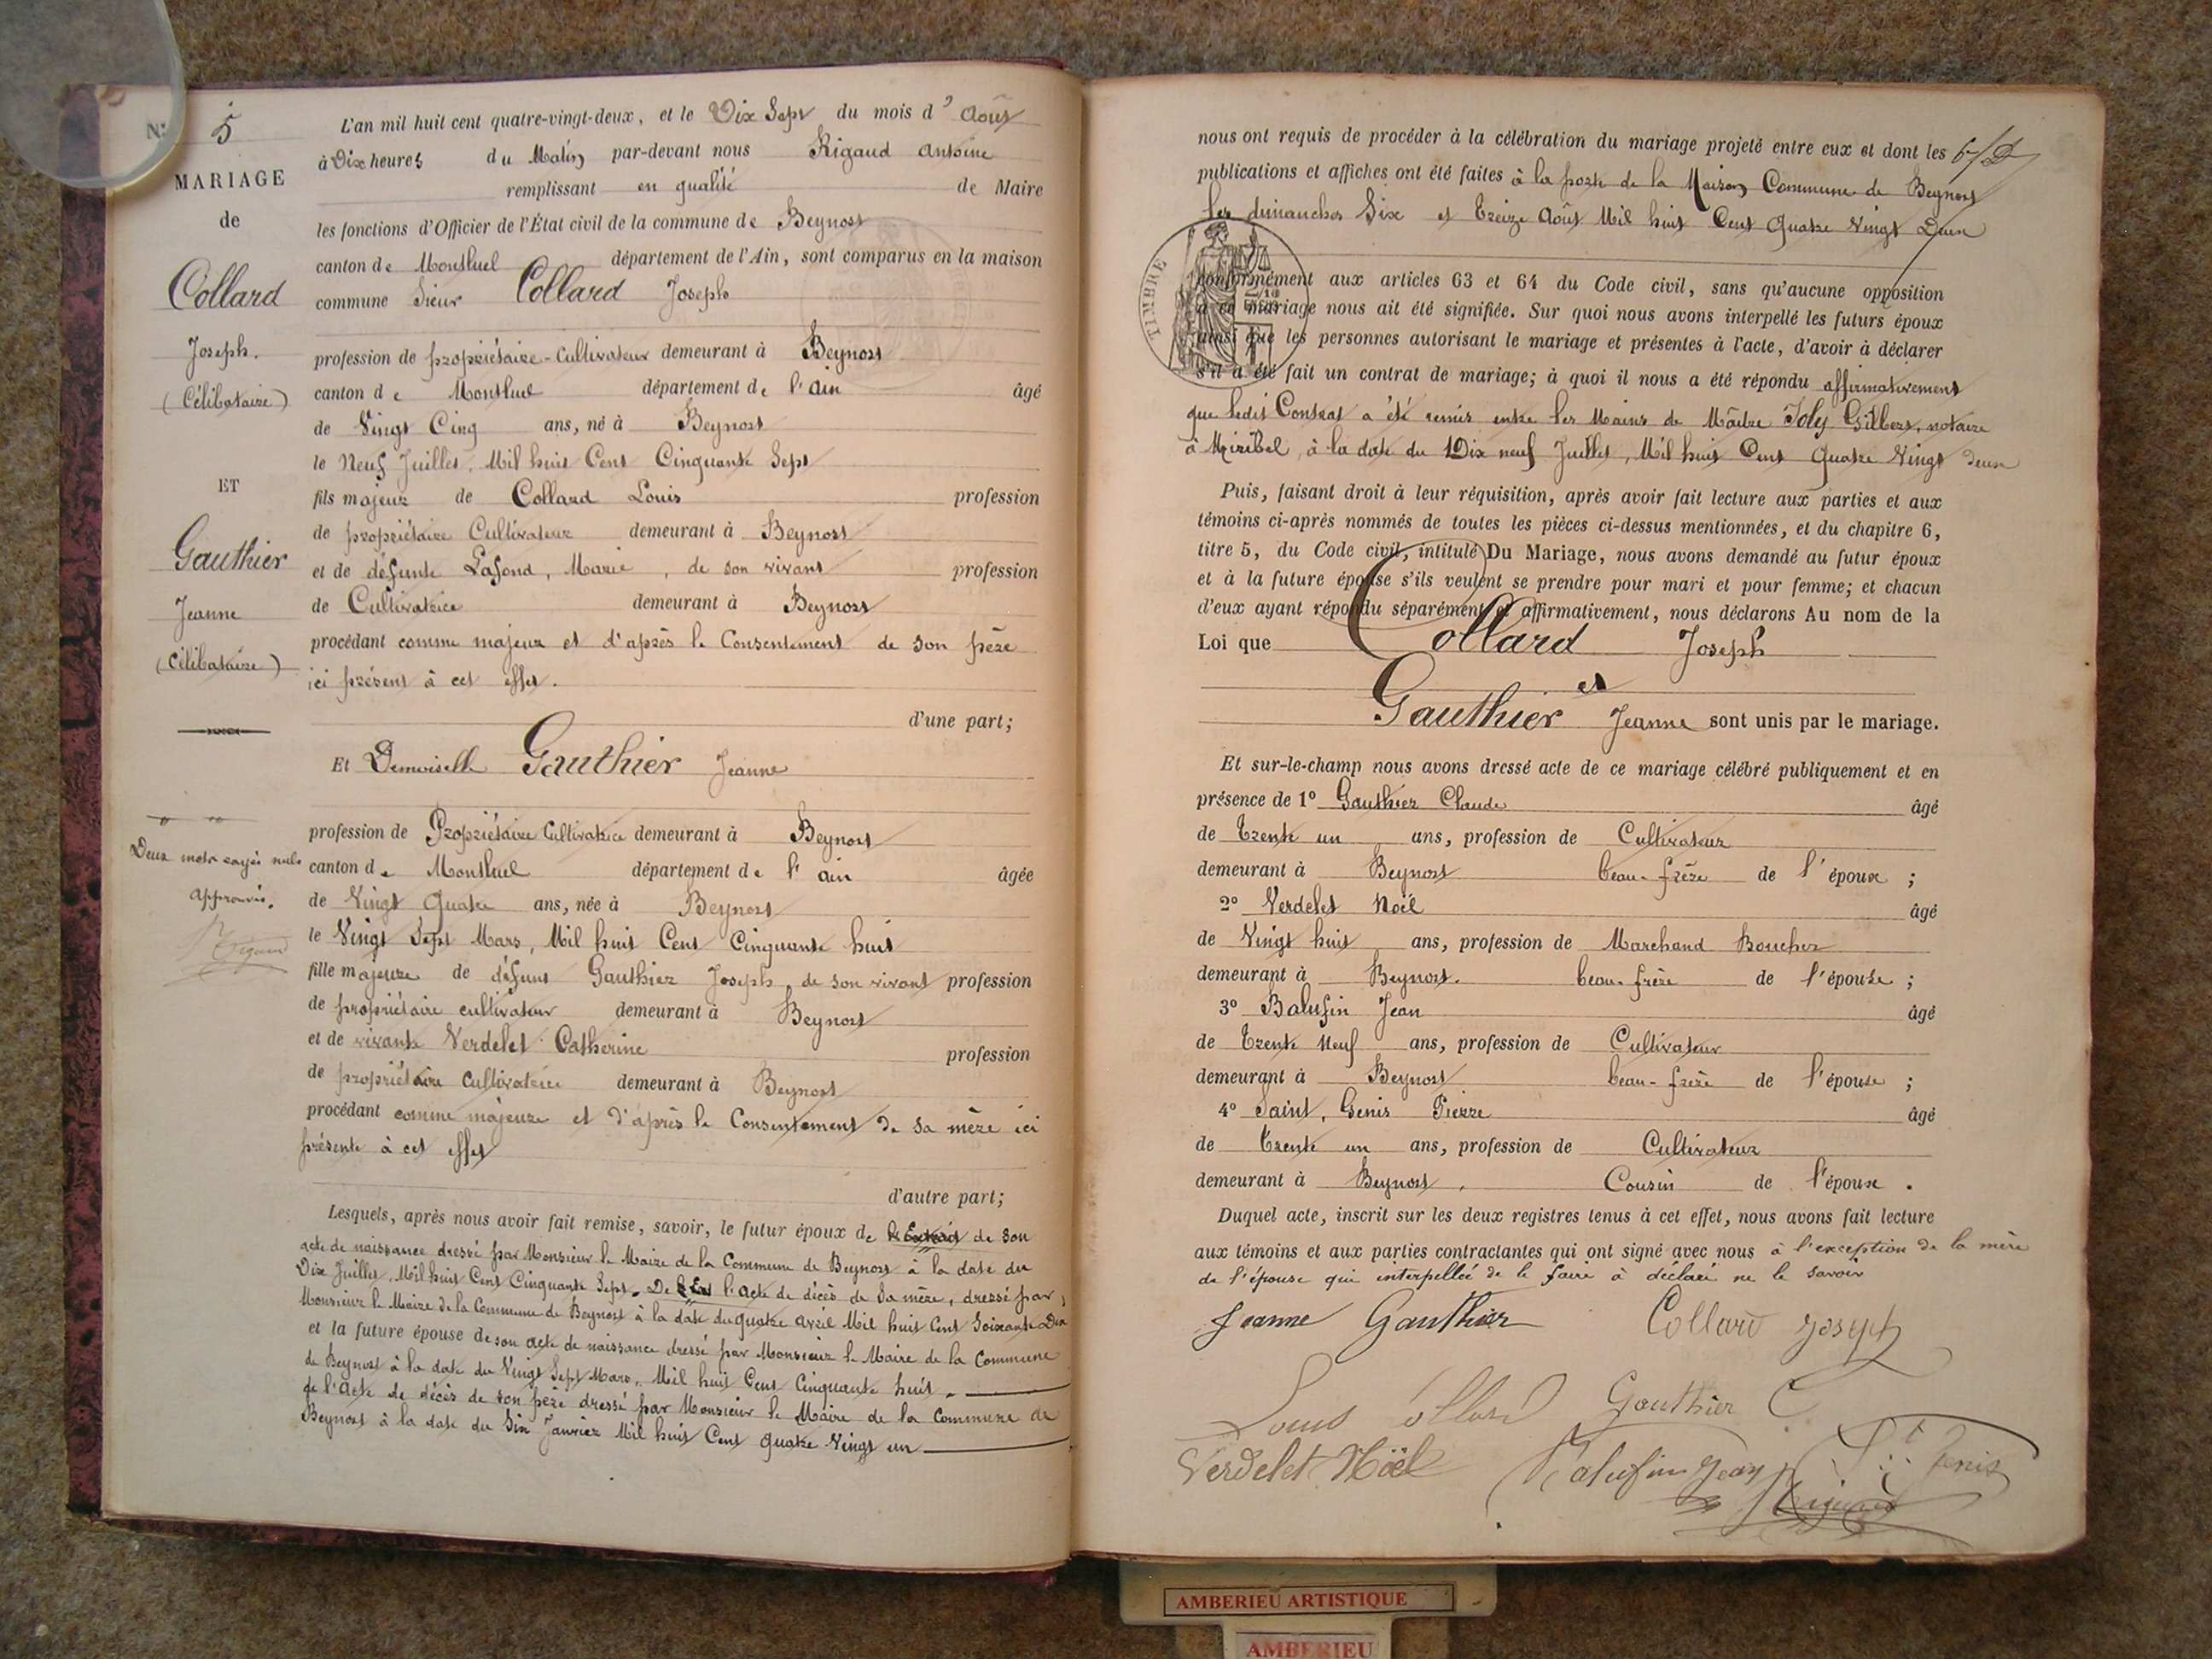 N° 5
MARIAGE
de
Collard
Joseph.
(Célibataire)
ET
Gauthier
Jeanne
(Célibataire)
Deux mots rayés nuls
approuvés.
Rigaud
L'an mil huit cent quatre-vingt-deux, et le Dix Sept du mois d' Août
à Dix heures du Matin par-devant nous Rigaud Antoine
remplissant en qualité de Maire
les fonctions d'Officier de l'État civil de la commune de Beynost
canton de Montluel département de l'Ain, sont comparus en la maison
commune Sieur Collard Joseph
profession de propriétaire-Cultivateur demeurant à Beynost
canton de Montluel département de l'ain âgé
de Vingt Cinq ans, né à Beynost
le Neuf Juillet, Mil huit Cent Cinquante Sept
fils majeur de Collard Louis profession
de propriétaire Cultivateur demeurant à Beynost
et de défunte Lafond, Marie, de son vivant profession
de Cultivatrice demeurant à Beynost
procédant comme majeur et d'après le Consentement de son père
ici présent à cet effet.
d'une part;
Et Demoiselle Gauthier Jeanne
profession de Propriétaire Cultivatrice demeurant à Beynost
canton de Montluel département de l'ain âgée
de Vingt Quatre ans, née à Beynost
le Vingt Sept Mars, Mil huit Cent Cinquante huit
fille majeure de défunt Gauthier Joseph, de son vivant profession
de propriétaire cultivateur demeurant à Beynost
et de vivante Verdelet Catherine profession
de propriétaire cultivatrice demeurant à Beynost
procédant comme majeure et d'après le Consentement de sa mère ici
présente à cet effet
d'autre part;
Lesquels, après nous avoir fait remise, savoir, le futur époux de l'Extrait de son
acte de naissance dressé par Monsieur le Maire de la Commune de Beynost à la date du
Dix Juillet, Mil huit Cent Cinquante Sept. De l'Ex l'acte de décès de Sa mère, dressé par
Monsieur le Maire de la Commune de Beynost à la date du quatre avril Mil huit Cent Soixante Dix
et la future épouse de son acte de naissance dressé par Monsieur le Maire de la Commune
de Beynost à la date du Vingt Sept Mars, Mil huit Cent Cinquante huit.
de l'Acte de décès de son père dressé par Monsieur le Maire de la Commune de
Beynost à la date du Six Janvier Mil huit Cent quatre Vingt un
nous ont requis de procéder à la célébration du mariage projeté entre eux et dont les
publications et affiches ont été faites à la porte de la Maison Commune de Beynost
les dimanches Six et Treize Août Mil huit Cent Quatre Vingt Deux
TIMBRE
conformément aux articles 63 et 64 du Code civil, sans qu'aucune opposition
à ce mariage nous ait été signifiée. Sur quoi nous avons interpellé les futurs époux
ainsi que les personnes autorisant le mariage et présentes à l'acte, d'avoir à déclarer
s'il a été fait un contrat de mariage; à quoi il nous a été répondu affirmativement
que ledit Contrat a été remis entre les Mains de Maître Joly Gilbert, notaire
à Miribel, à la date du Dix neuf Juillet, Mil huit Cent Quatre Vingt deux
Puis, faisant droit à leur réquisition, après avoir fait lecture aux parties et aux
témoins ci-après nommés de toutes les pièces ci-dessus mentionnées, et du chapitre 6,
titre 5, du Code civil, intitulé Du Mariage, nous avons demandé au futur époux
et à la future épouse s'ils veulent se prendre pour mari et pour femme; et chacun
d'eux ayant répondu séparément et affirmativement, nous déclarons Au nom de la
Loi que Collard Joseph
et
Gauthier Jeanne sont unis par le mariage.
Et sur-le-champ nous avons dressé acte de ce mariage célébré publiquement et en
présence de 1° Gauthier Claude âgé
de Trente un ans, profession de Cultivateur
demeurant à Beynost beau-frère de l'époux ;
2° Verdelet Noël âgé
de Vingt huit ans, profession de Marchand Boucher
demeurant à Beynost. beau-frère de l'épouse ;
3° Balufin Jean âgé
de Trente Neuf ans, profession de Cultivateur
demeurant à Beynost beau-frère de l'épouse ;
4° Saint, Genis Pierre âgé
de Trente un ans, profession de Cultivateur
demeurant à Beynost. Cousin de l'époux.
Duquel acte, inscrit sur les deux registres tenus à cet effet, nous avons fait lecture
aux témoins et aux parties contractantes qui ont signé avec nous à l'exception de la mère
de l'épouse qui interpellée de le faire à déclaré ne le savoir
Jeanne Gauthier Collard Joseph
Louis Collard Gauthier C
Verdelet Noël Balufin Jean St Genis
Rigaud
AMBERIEU ARTISTIQUE
AMBERIEU